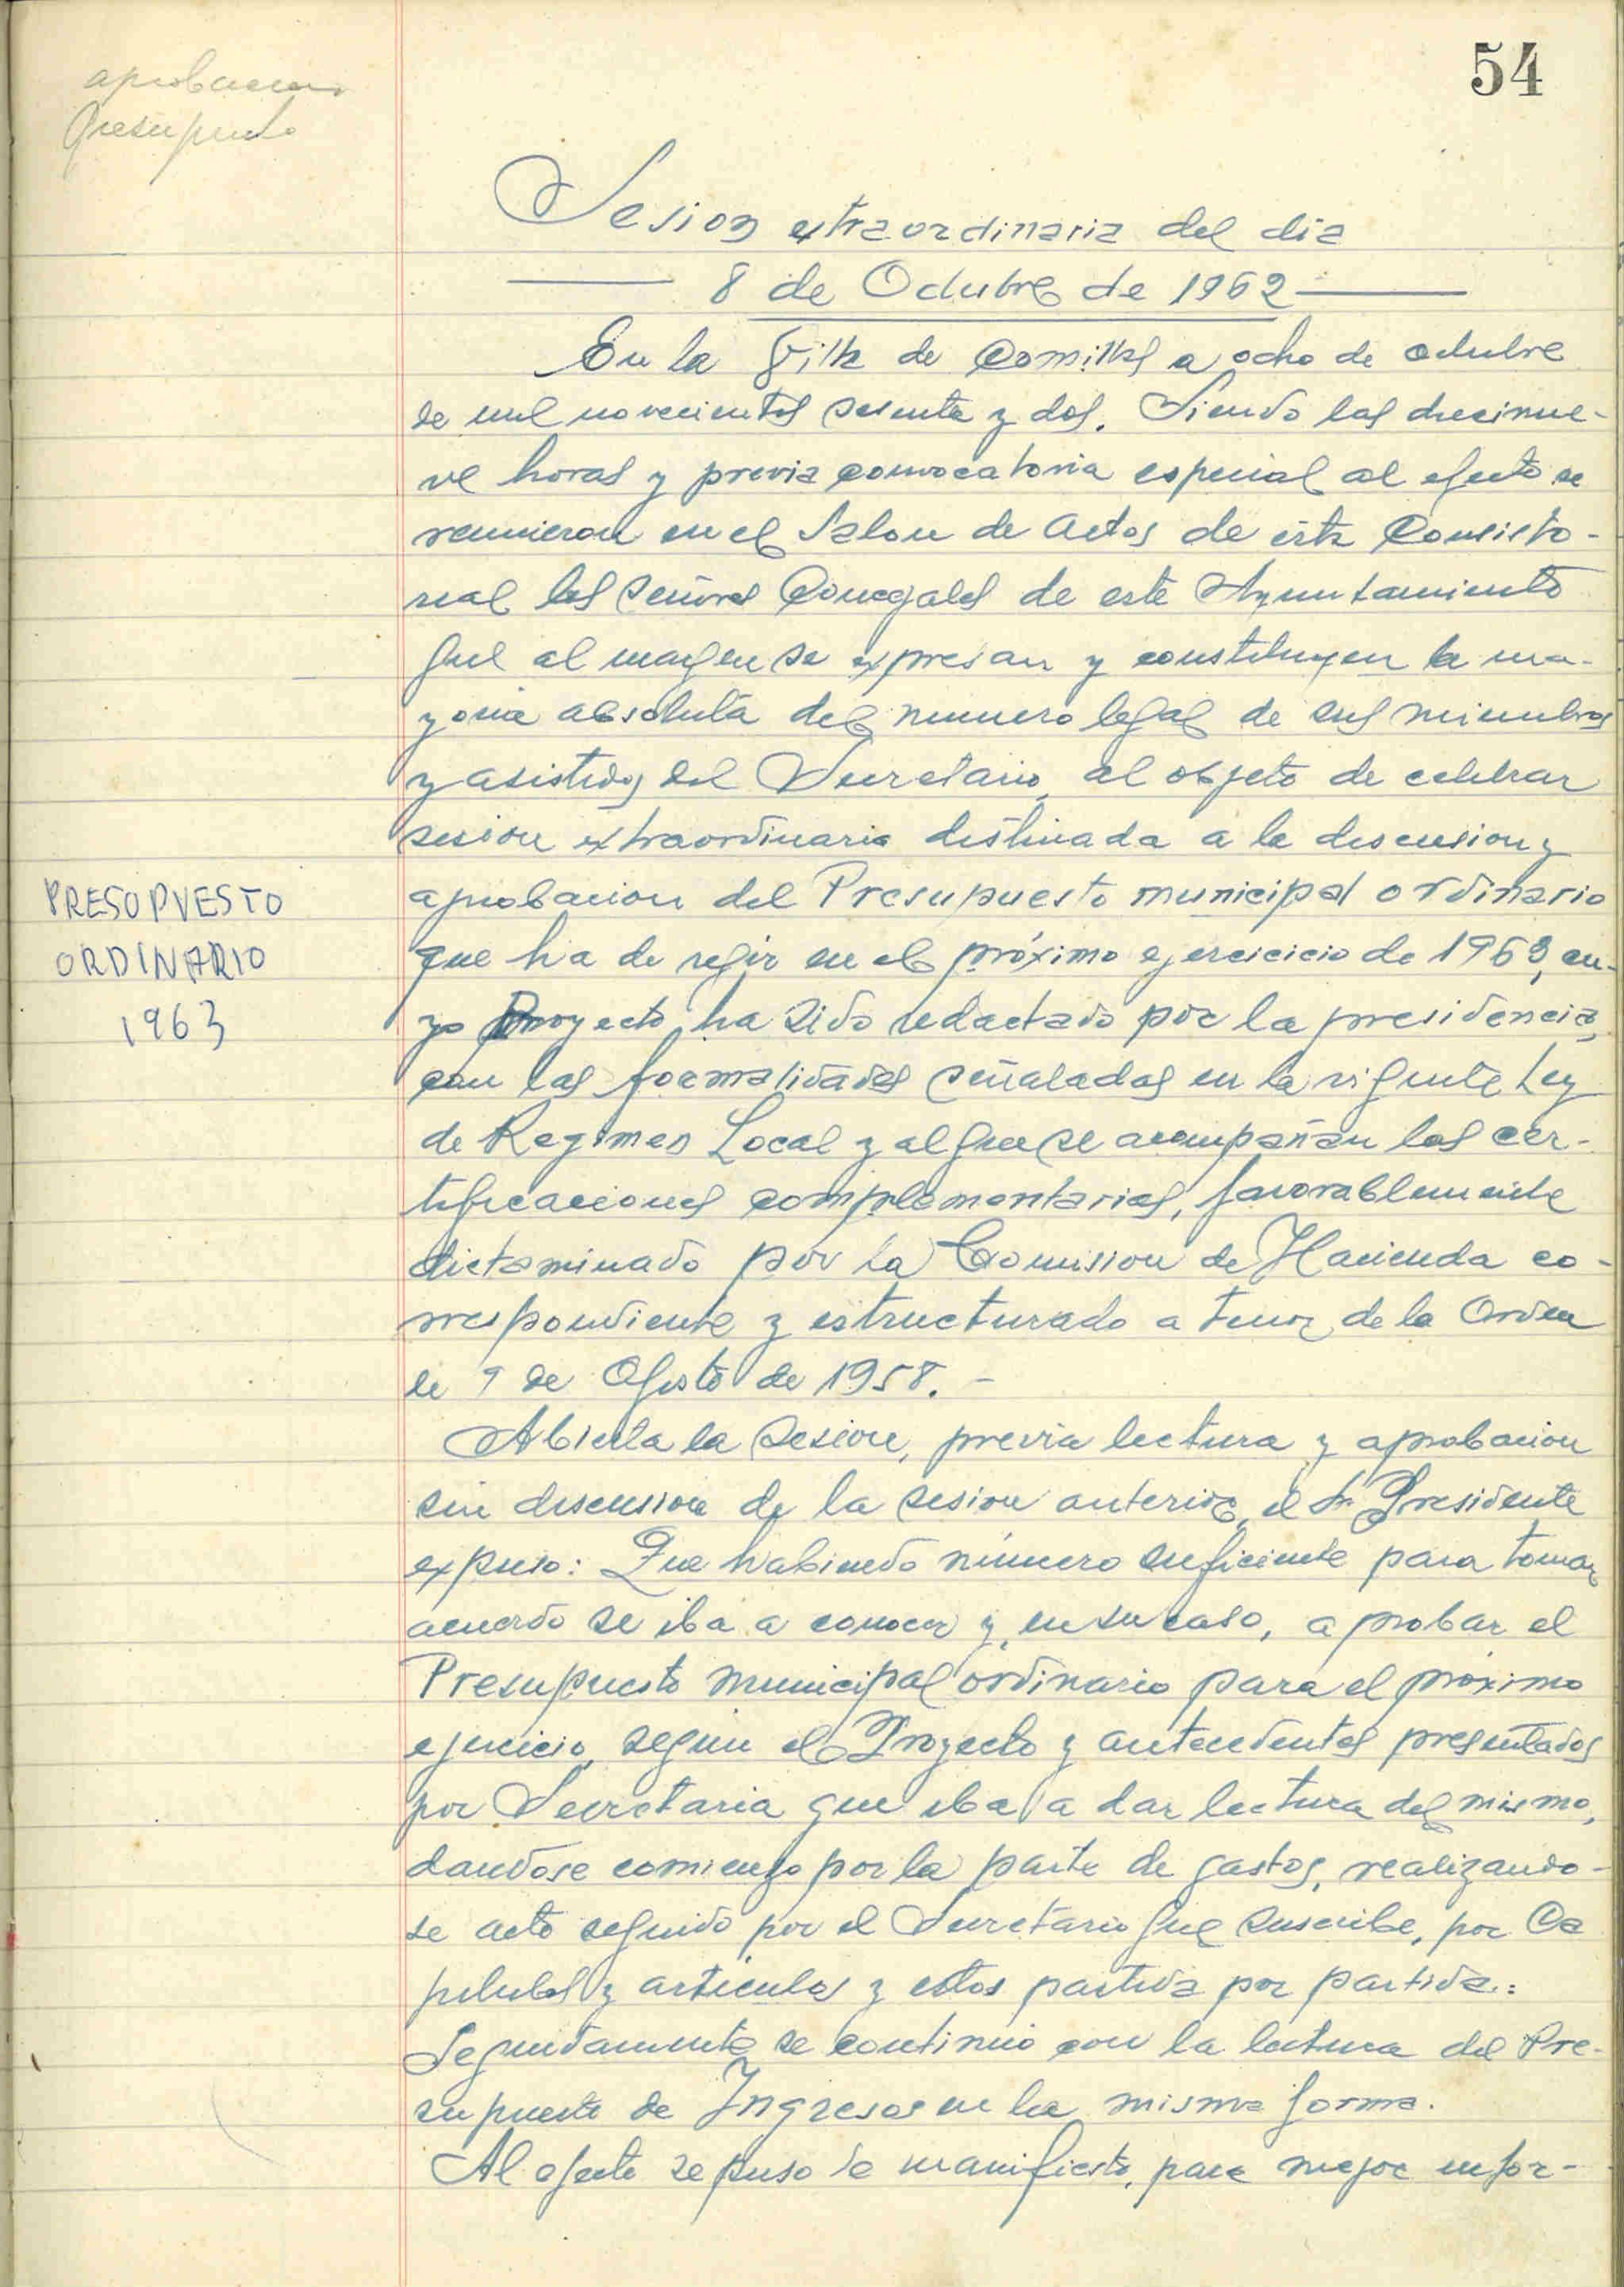 54
aprobacion
Presupuesto
Sesion extraordinaria del dia
8 de Octubre de 1962
En la Villa de Comillas a ocho de octubre
de mil novecientos sesenta y dos. Siendo las diecinue-
ve horas y previa convocatoria especial al efecto se
reunieron en el Salon de actos de ésta Consisto-
rial los señores Concejales de este Ayuntamiento
que al margen se expresan y constituyen la ma-
yoria absoluta del numero legal de sus miembros
y asistidos del Secretario, al objeto de celebrar
sesion extraordinaria destinada a la discusion y
aprobacion del Presupuesto municipal ordinario
que ha de regir en el próximo ejercicicio de 1963, cu-
yo Proyecto ha sido redactado por la presidencia,
con las formalidades señaladas en la vigente Ley
de Regimen Local y al que se acompañan las cer-
tificaciones complementarias, favorablemente
dictaminado por la Comision de Hacienda co-
rrespondiente y estructurado a tenor de la Orden
de 9 de Agosto de 1958. -
Abierta la sesion, previa lectura y aprobacion
sin discusion de la sesion anterior, el Sr. Presidente
expuso: Que habiendo número suficiente para tomar
acuerdo se iba a conocer y, en su caso, aprobar el
Presupuesto municipal ordinario para el próximo
ejercicio, según el Proyecto y antecedentes presentados
por Secretaria que iba a dar lectura del mismo,
dandose comienzo por la parte de gastos, realizando-
se acto seguido por el Secretario que suscribe, por Ca
pitulos y articulos y estos partida por partida.:
Seguidamente se continuó con la lectura del Pre-
supuesto de Ingresos en la misma forma.
Al efecto se puso de manifiesto, para mejor infor-
PRESUPUESTO
ORDINARIO
1963